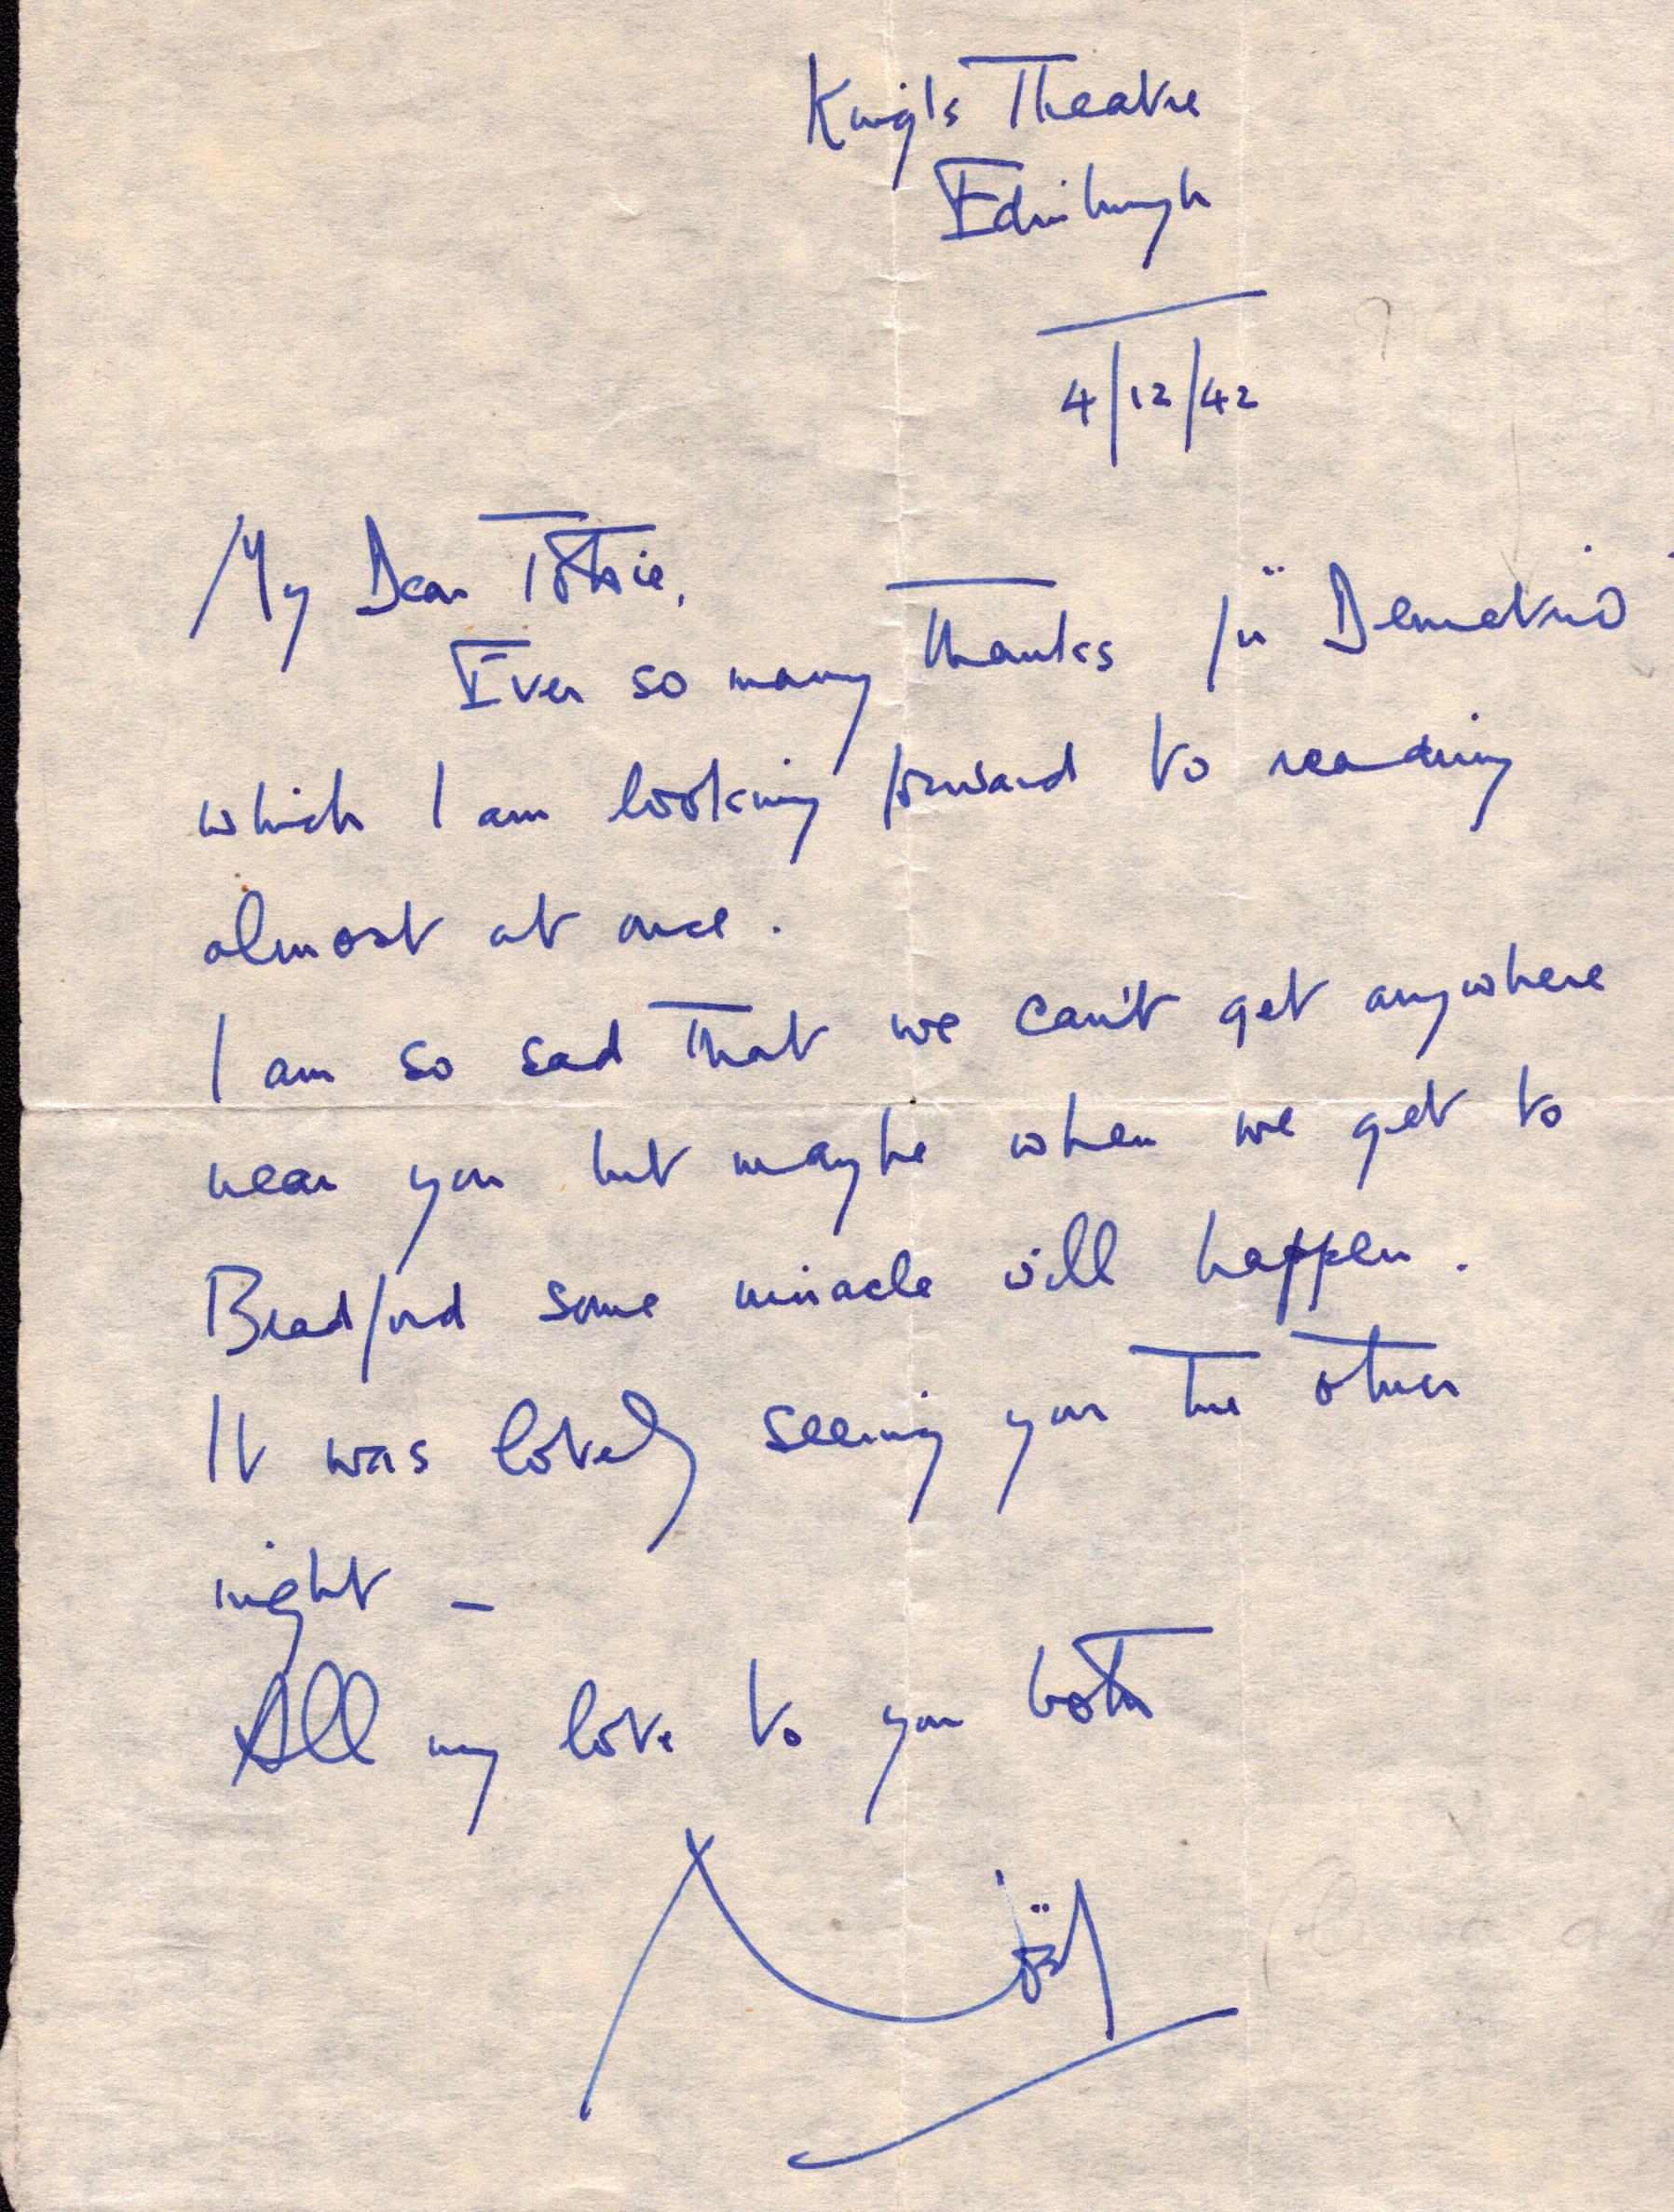 King's Theatre
Edinburgh
4/12/42
My Dear Totsie,
Ever so many thanks for "Demetrio"
which I am looking forward to reading
almost at once.
I am so sad that we can't get anywhere
near you but maybe when we get to
Bradford some miracle will happen.
It was lovely seeing you the other
night —
All my love to you both
Noël